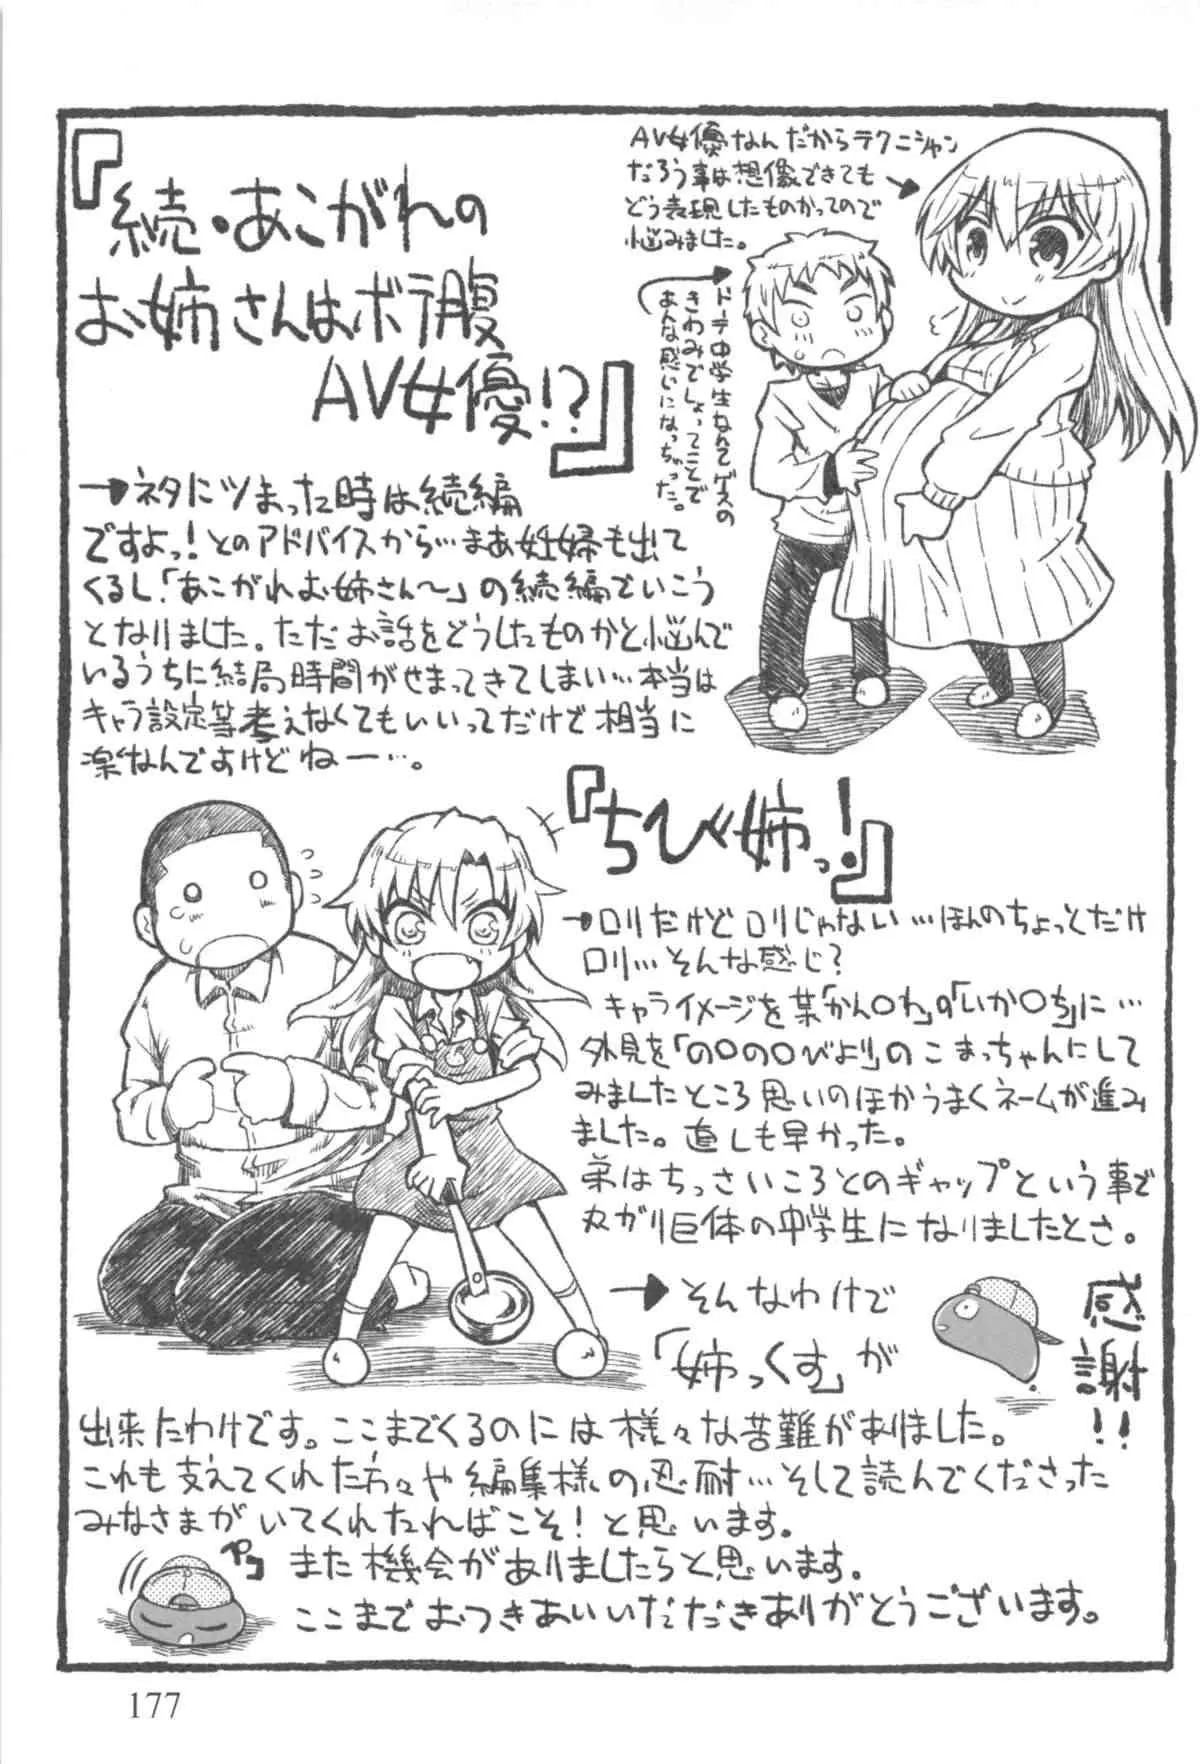 『続・あこがれの
お姉さんはボテ腹
AV女優!?』
AV女優なんだからテクニシャン
だろう事は想像できても
どう表現したものかってので
悩みました。
ドーテー中学生なんてゲスの
きわみでしょってことで
あんな感いになっちゃった。
→ネタにツまった時は続編
ですよっ!とのアドバイスから…まあ妊婦も出て
くるし「あこがれお姉さん〜」の続編でいこう
となりました。ただお話をどうしたものかと悩んで
いるうちに結局時間がせまってきてしまい…本当は
キャラ設定等考えなくてもいいってだけで相当に
楽なんですけどねー…。
『ちび姉っ!』
→ロリだけどロリじゃない…ほんのちょっとだけ
ロリ…そんな感じ?
キャライメージを某「かん○れ」の「いか○ち」に…
外見を「の○の○びより」のこまっちゃんにして
みましたところ思いのほかうまくネームが進み
ました。直しも早かった。
弟はちっさいころとのギャップという事で
丸ガリ巨体の中学生になりましたとさ。
→そんなわけで
「姉っくす」が
感謝!!
出来たわけです。ここまでくるのには様々な苦難がありました。
これも支えてくれた方々や編集様の忍耐…そして読んでくださった
みなさまがいてくれたればこそ!と思います。
ペコ
また機会がありましたらと思います。
ここまでおつきあいいただきありがとうございます。
177